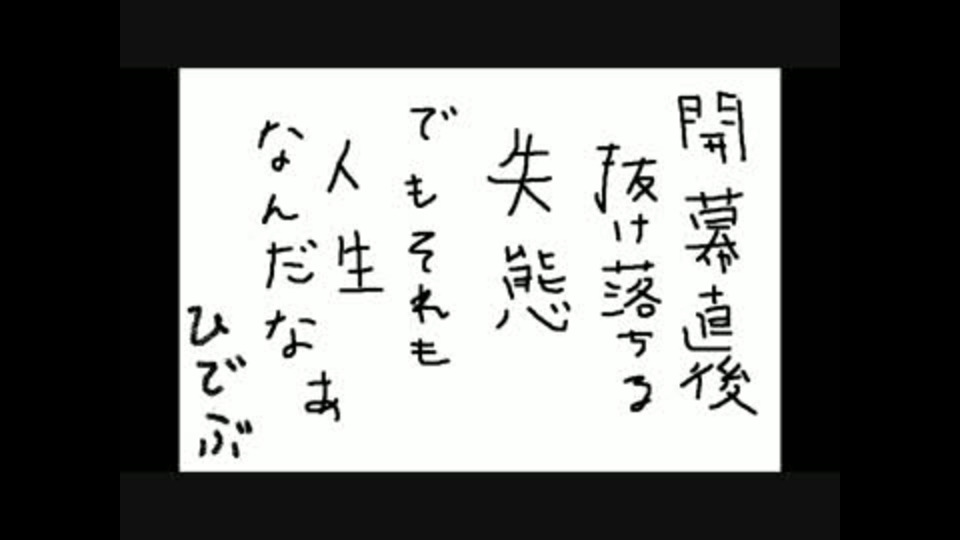 開幕直後
抜け落ちる
失態
でもそれも
人生
なんだなぁ
ひでぶ